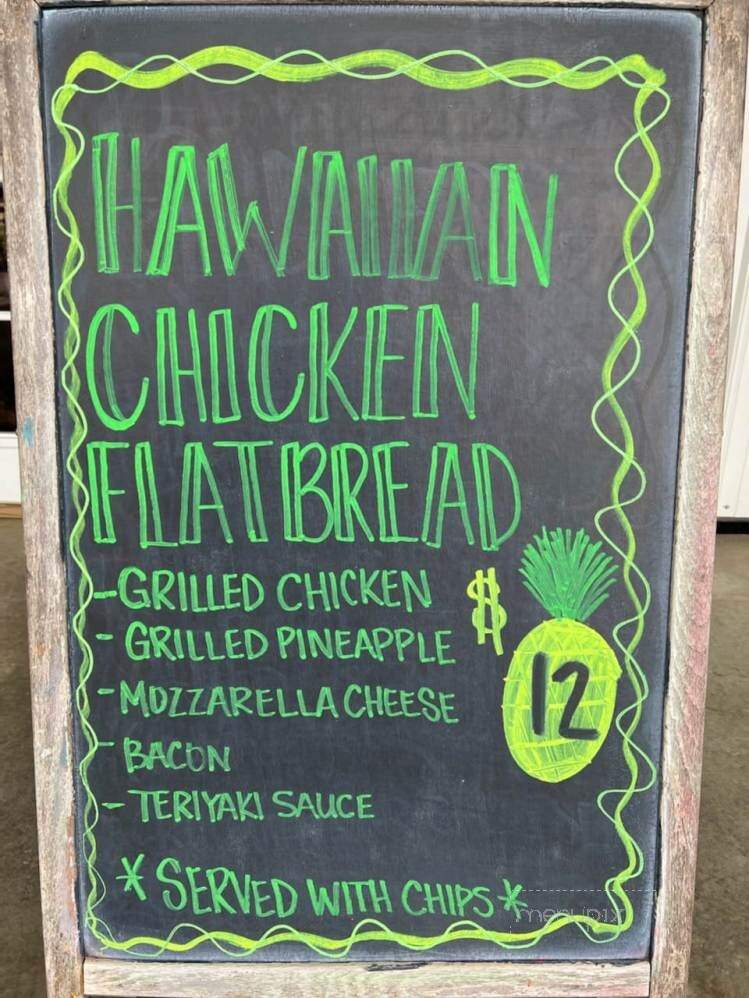 HAWAIIAN
CHICKEN
FLATBREAD
-GRILLED CHICKEN
- GRILLED PINEAPPLE
- MOZZARELLA CHEESE
- BACON
- TERIYAKI SAUCE
$12
* SERVED WITH CHIPS *
menupix